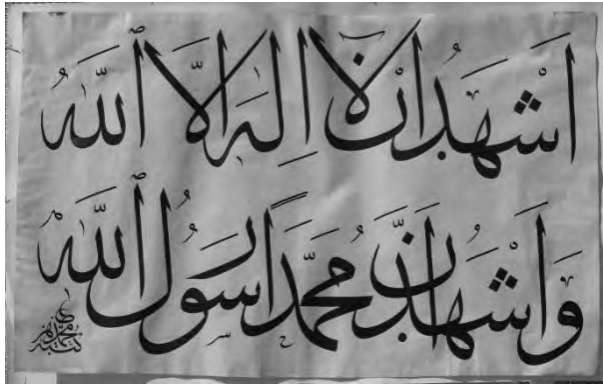 اَشْهَدُ اَنْ لَا اِلٰهَ اِلَّا اللّٰهُ
وَاَشْهَدُ اَنَّ مُحَمَّدًا رَسُولُ اللّٰهِ